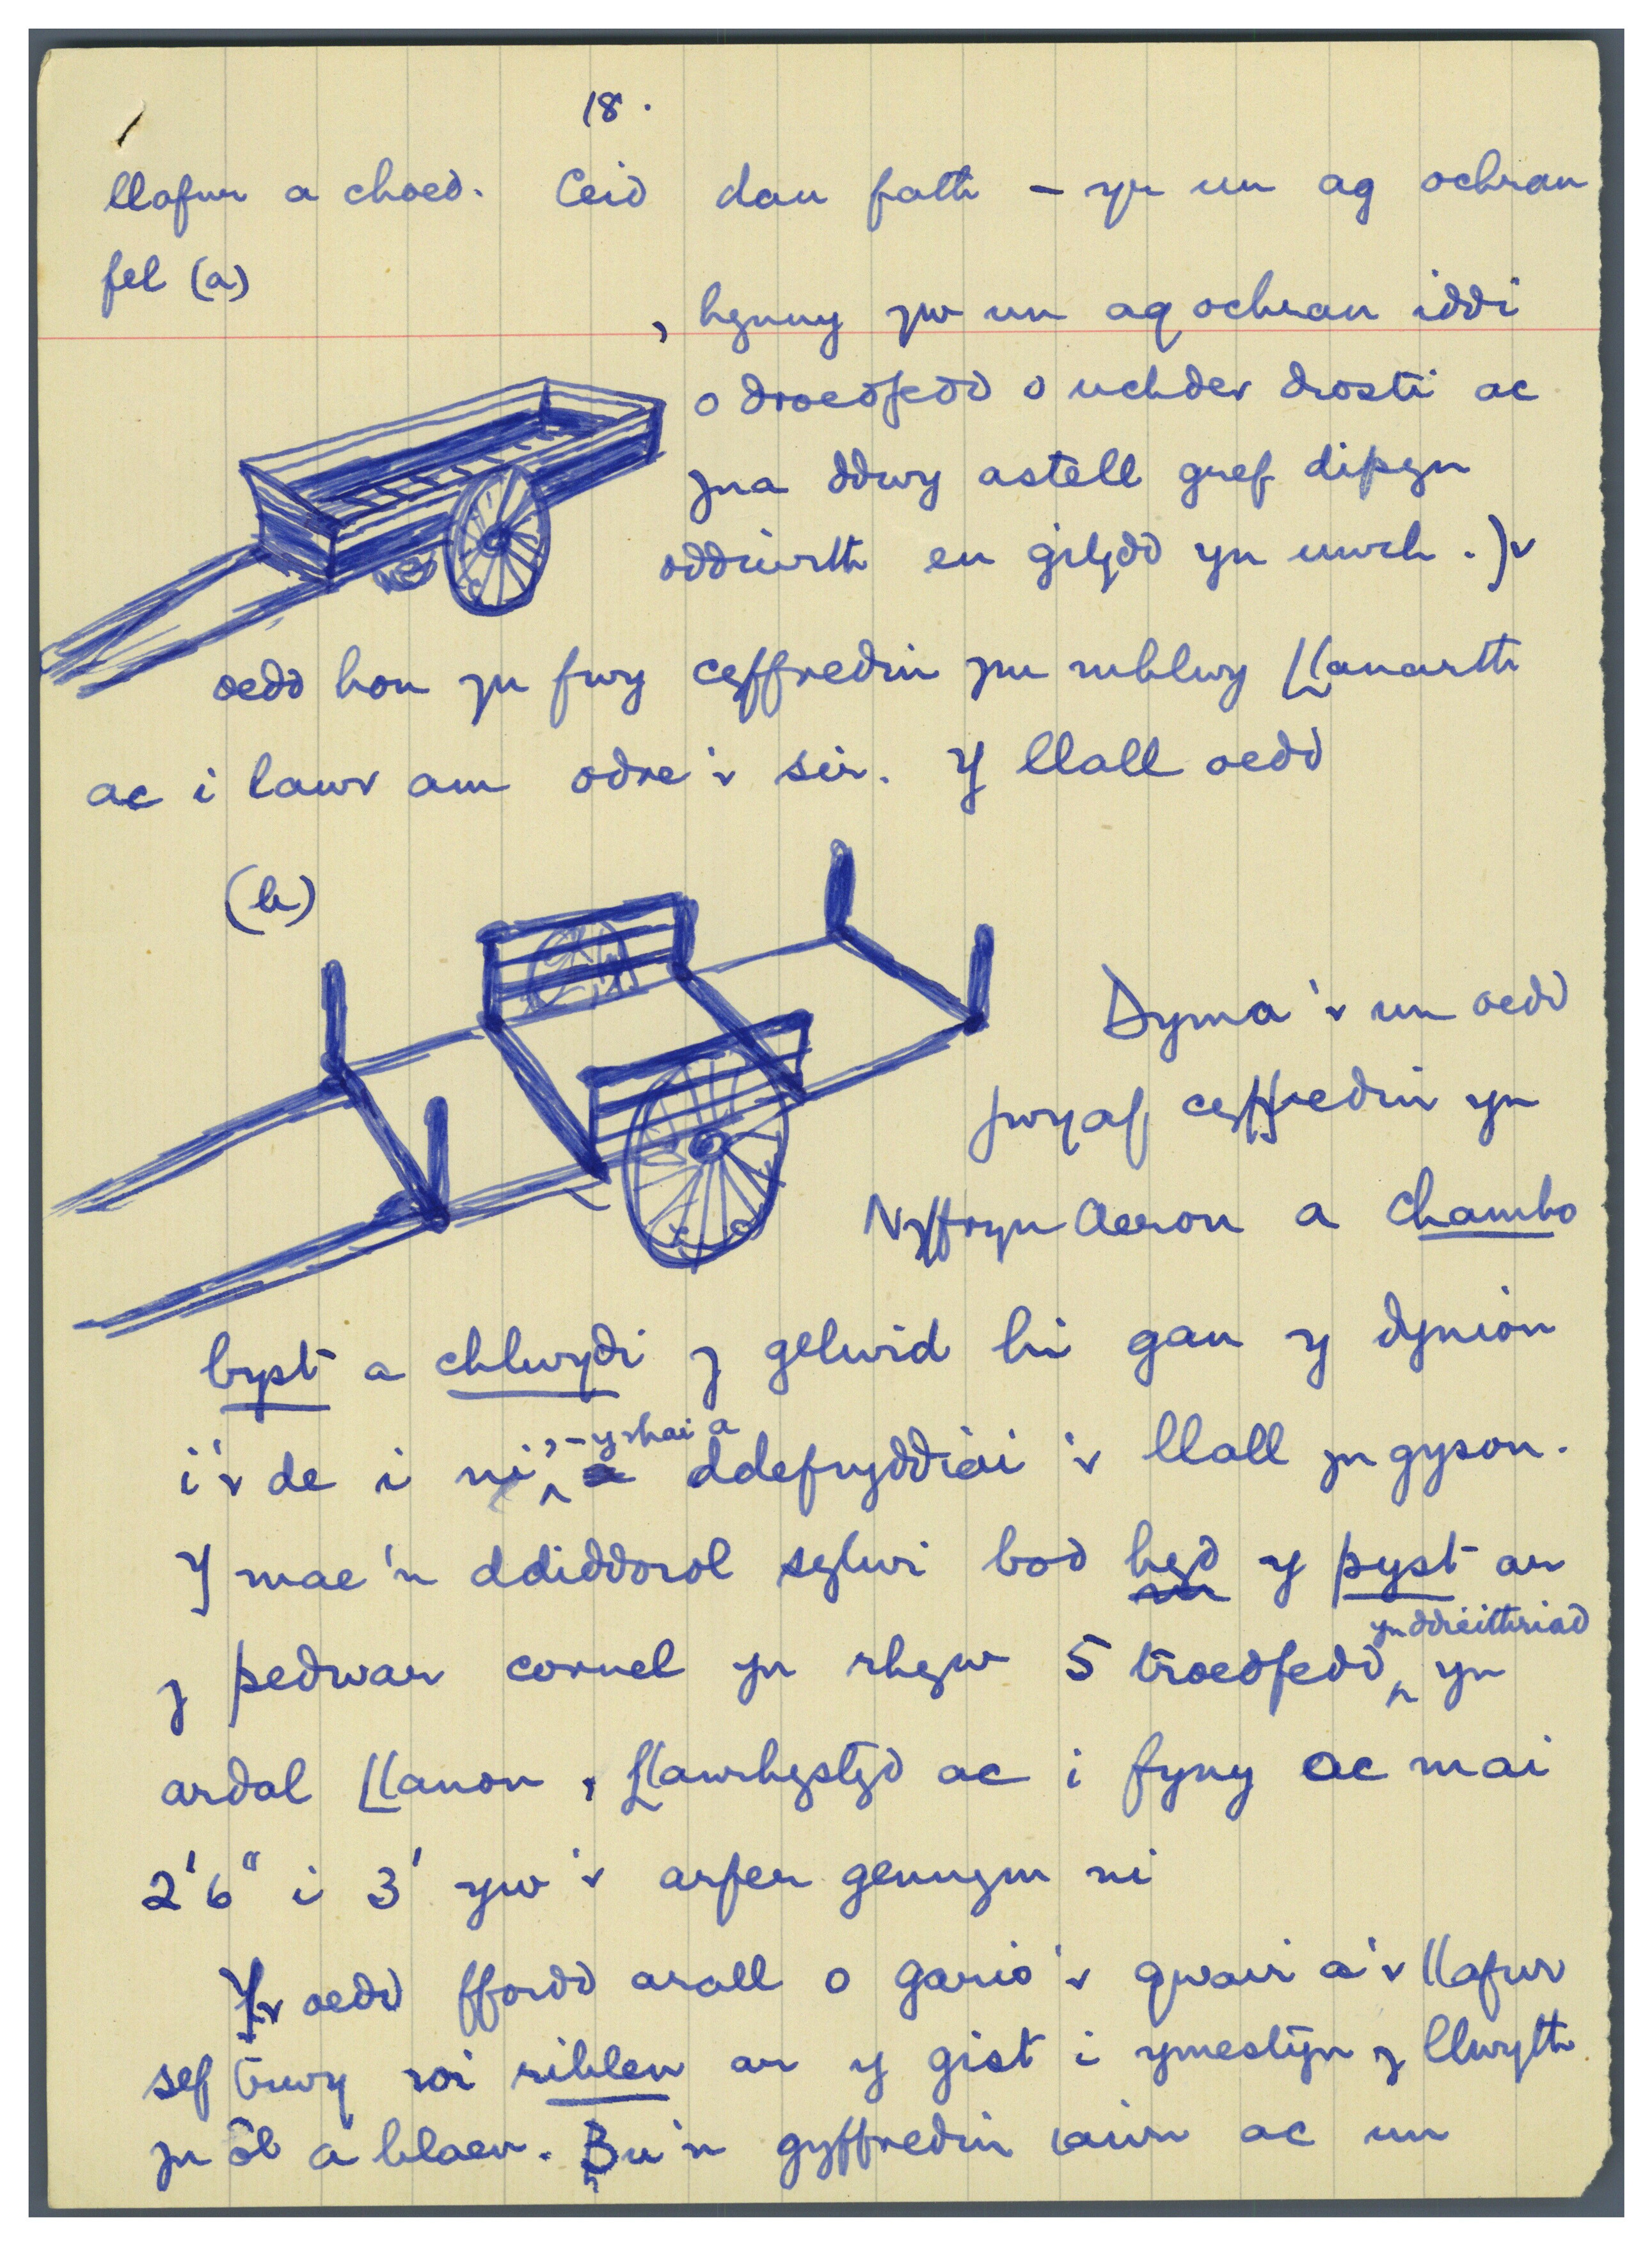 18.
llafur a choed. Ceid dau fath – yr un ag ochrau
fel (a)
, hynny yw un ag ochrau iddi
o droedfedd o uchder drosti ac
yna ddwy astell gref dipyn
oddiwrth eu gilydd yn uwch.) Yr
oedd hon yn fwy cyffredin ym mhlwy Llanarth
ac i lawr am odre'r sir. Y llall oedd
(b)
Dyma'r un oedd
fwyaf cyffredin yn
Nyffryn Aeron a Chambo
byst a chlwydi y gelwid hi gan y dynion
i'r de i ni, – y rhai a ddefnyddiai'r llall yn gyson.
Y mae'n ddiddorol sylwi bod hyd y pyst ar
y pedwar cornel yn rhyw 5 troedfedd yn ddieithriad yn
ardal Llanon, Llanrhystyd ac i fyny ac mai
2'6" i 3' yw'r arfer gennym ni
Yr oedd ffordd arall o gario'r gwair a'r llafur
sef trwy roi riblen ar y gist i ymestyn y llwyth
yn ôl a blaen. Bu'n gyffredin iawn ac un